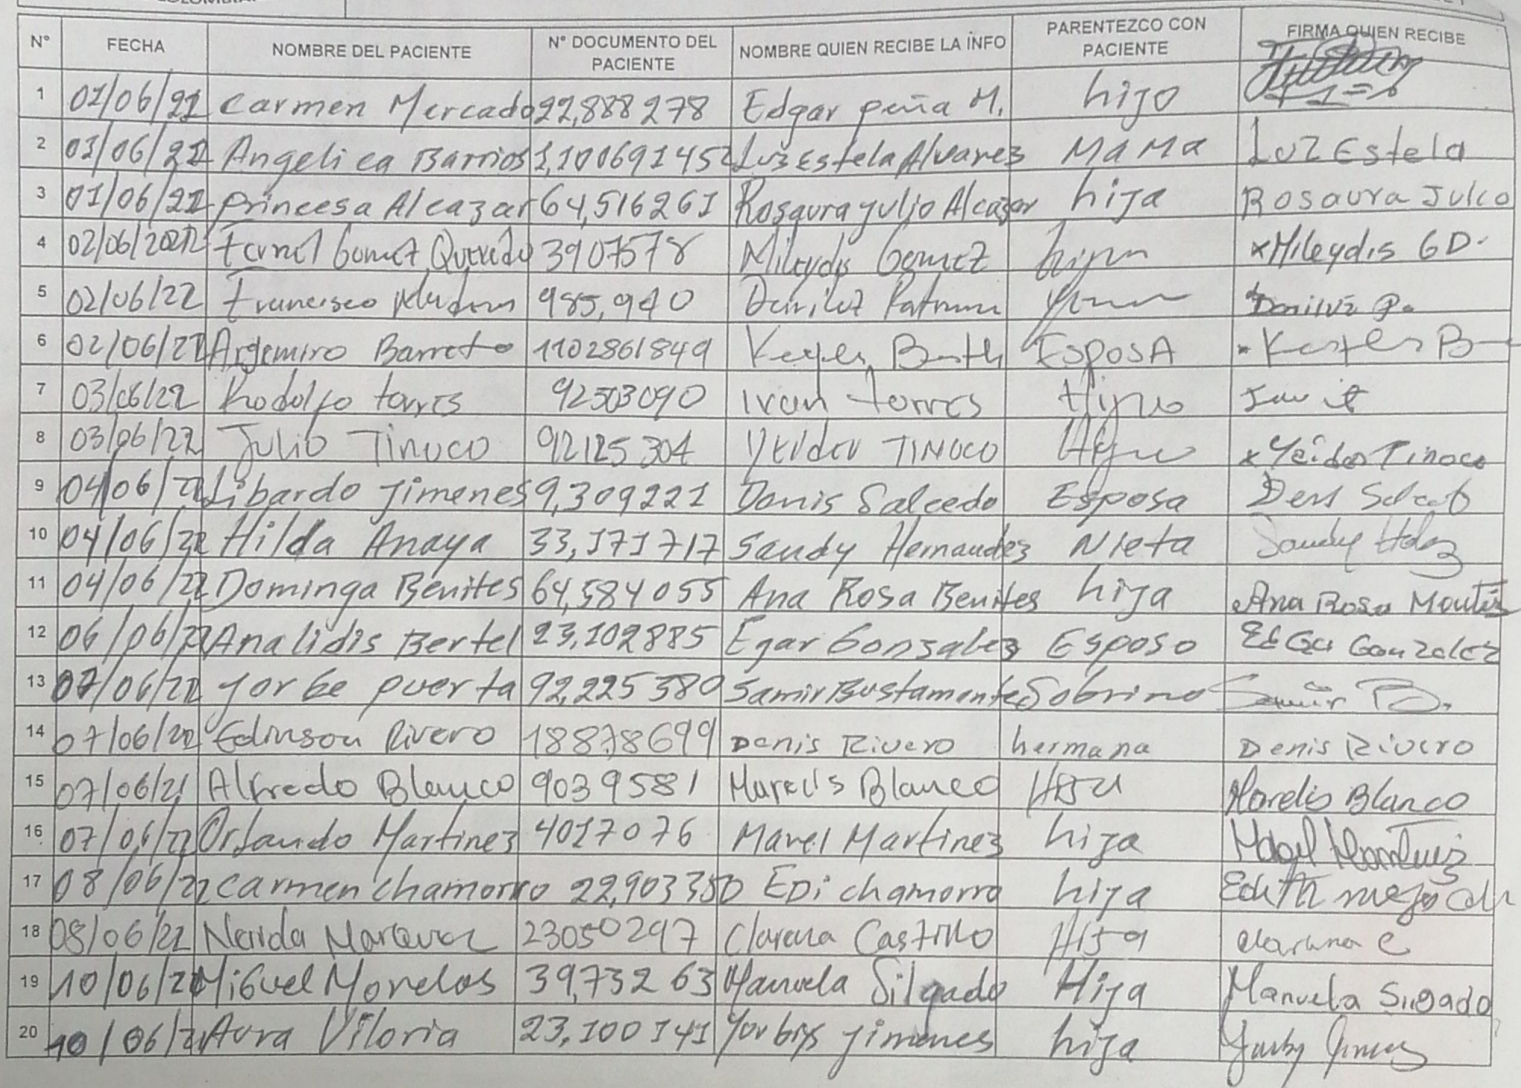 N° FECHA NOMBRE DEL PACIENTE N° DOCUMENTO DEL PACIENTE NOMBRE QUIEN RECIBE LA INFO PARENTEZCO CON PACIENTE FIRMA QUIEN RECIBE
1 01/06/22 Carmen Mercado 22,888278 Edgar peña M. hijo
2 01/06/22 Angelica Barrios 1,100691452 Luz Estela Alvarez MaMa Luz Estela
3 01/06/22 princesa Alcazar 64,516261 Rosaura julio Alcazar hija Rosaura Julio
4 02/06/2022 Gomez Quevedo 3907578 Mileydis Gomez x Mileydis GD.
5 02/06/22 Francisco 985,940
6 02/06/22 Argemiro Barreto 1102861849 EsposA
7 03/06/22 Rodolfo torres 92503090 Ivan torres Hijo
8 03/06/22 Julio Tinoco 92125304 TINOCO Hijo x Yeider Tinoco
9 04/06/22 Libardo jimenes 9,309221 Donis Salcedo Esposa
10 04/06/22 Hilda Anaya 33,171717 Sandy Hernandez Nieta Sandy Hdez
11 04/06/22 Dominga Benites 64,584055 Ana Rosa Benites hija Ana Rosa Montes
12 06/06/22 Analidis Bertel 23,102885 Egar Gonsales Esposo Edgar Gonzalez
13 07/06/22 yorge puerta 92,225380 Samir Bustamante Sobrino Samir B.
14 07/06/22 Edinson Rivero 18878699 Denis Rivero hermana Denis Rivero
15 07/06/22 Alfredo Blanco 9039581 Marelis Blanco Hija Marelis Blanco
16 07/06/22 Orlando Martinez 4017076 Mavel Martinez hija
17 08/06/22 Carmen chamorro 22,903350 EDi chamorro hija Edith
18 08/06/22 Nerida 23050297 Clarena Castillo Hija Clarena C
19 10/06/22 Miguel Morelos 39,732 63 Manuela Silgado Hija Manuela Silgado
20 10/06/22 Aura Viloria 23,100141 Yorbys jimenes hija